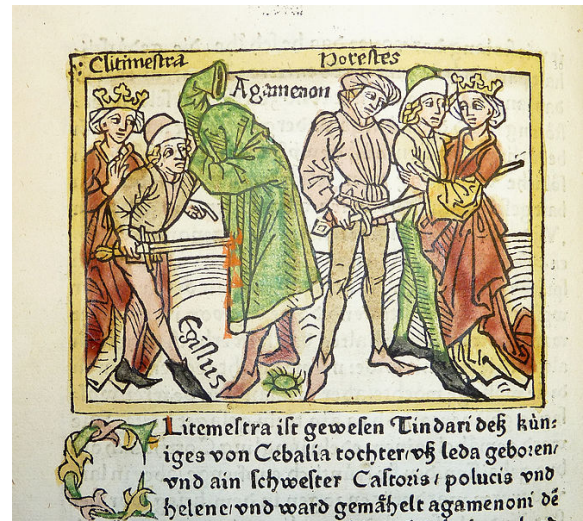 Clitimestra
Horestes
Agamenon
Egistus
Clitemestra ist gewesen Tindari deß kün⸗
iges von Cebalia tochter/ vß leda geboren/
vnd ain schwester Castoris/ polucis vnd
helene/ vnd ward gemåhelt agamenoni dē